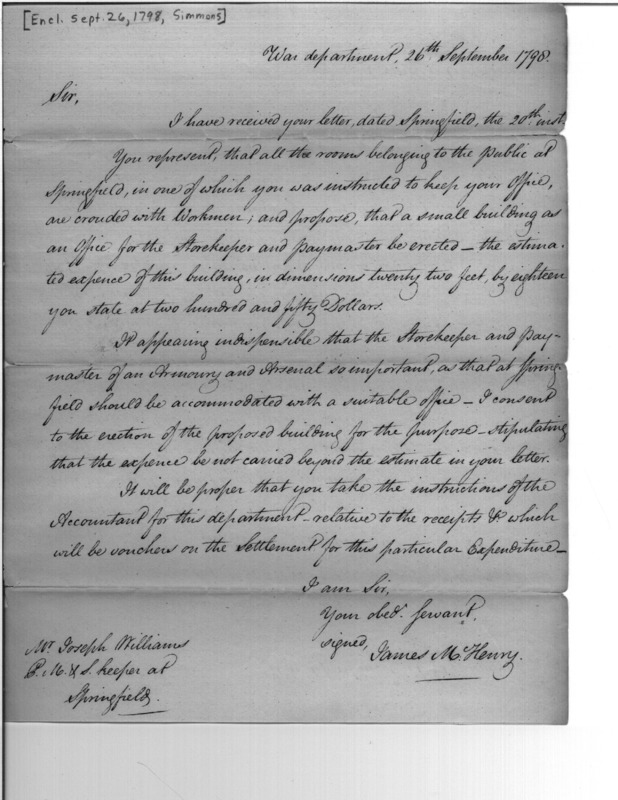 [Encl. Sept. 26, 1798, Simmons]
War department, 26th September 1798.
Sir,
I have received your letter, dated Springfield, the 20th inst.
You represent, that all the rooms belonging to the public at
Springfield, in one of which you was instructed to keep your Office,
are crouded with Workmen; and propose, that a small building as
an Office for the Storekeeper and Paymaster be erected – the estima-
ted expence of this building, in dimensions twenty two feet, by eighteen
you state at two hundred and fifty Dollars.
It appearing indispensible that the Storekeeper and Pay-
master of an Armoury and Arsenal so important, as that at Spring-
field should be accommodated with a suitable office – I consent
to the erection of the proposed building for the purpose – stipulating
that the expence be not carried beyond the estimate in your letter.
It will be proper that you take the instructions of the
Accountant for this department – relative to the receipts &c which
will be vouchers on the Settlement for this particular Expenditure –
I am Sir,
Your obed. Servant,
signed,
James McHenry.
Mr. Joseph Williams
P. M. & S. keeper at
Springfield.